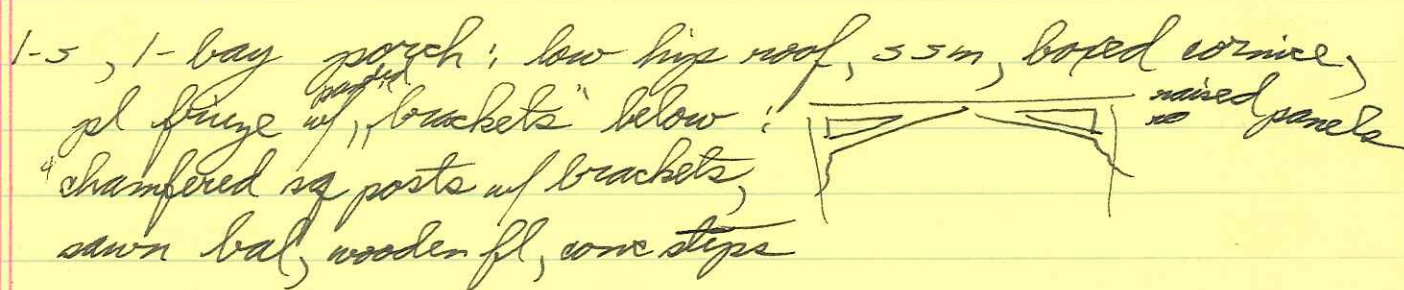 1-s, 1-bay porch: low hip roof, ssm, boxed cornice,
pl frieze w/ paneled "brackets" below: raised panels
4 chamfered sq posts w/ brackets,
sawn bal, wooden fl, conc steps